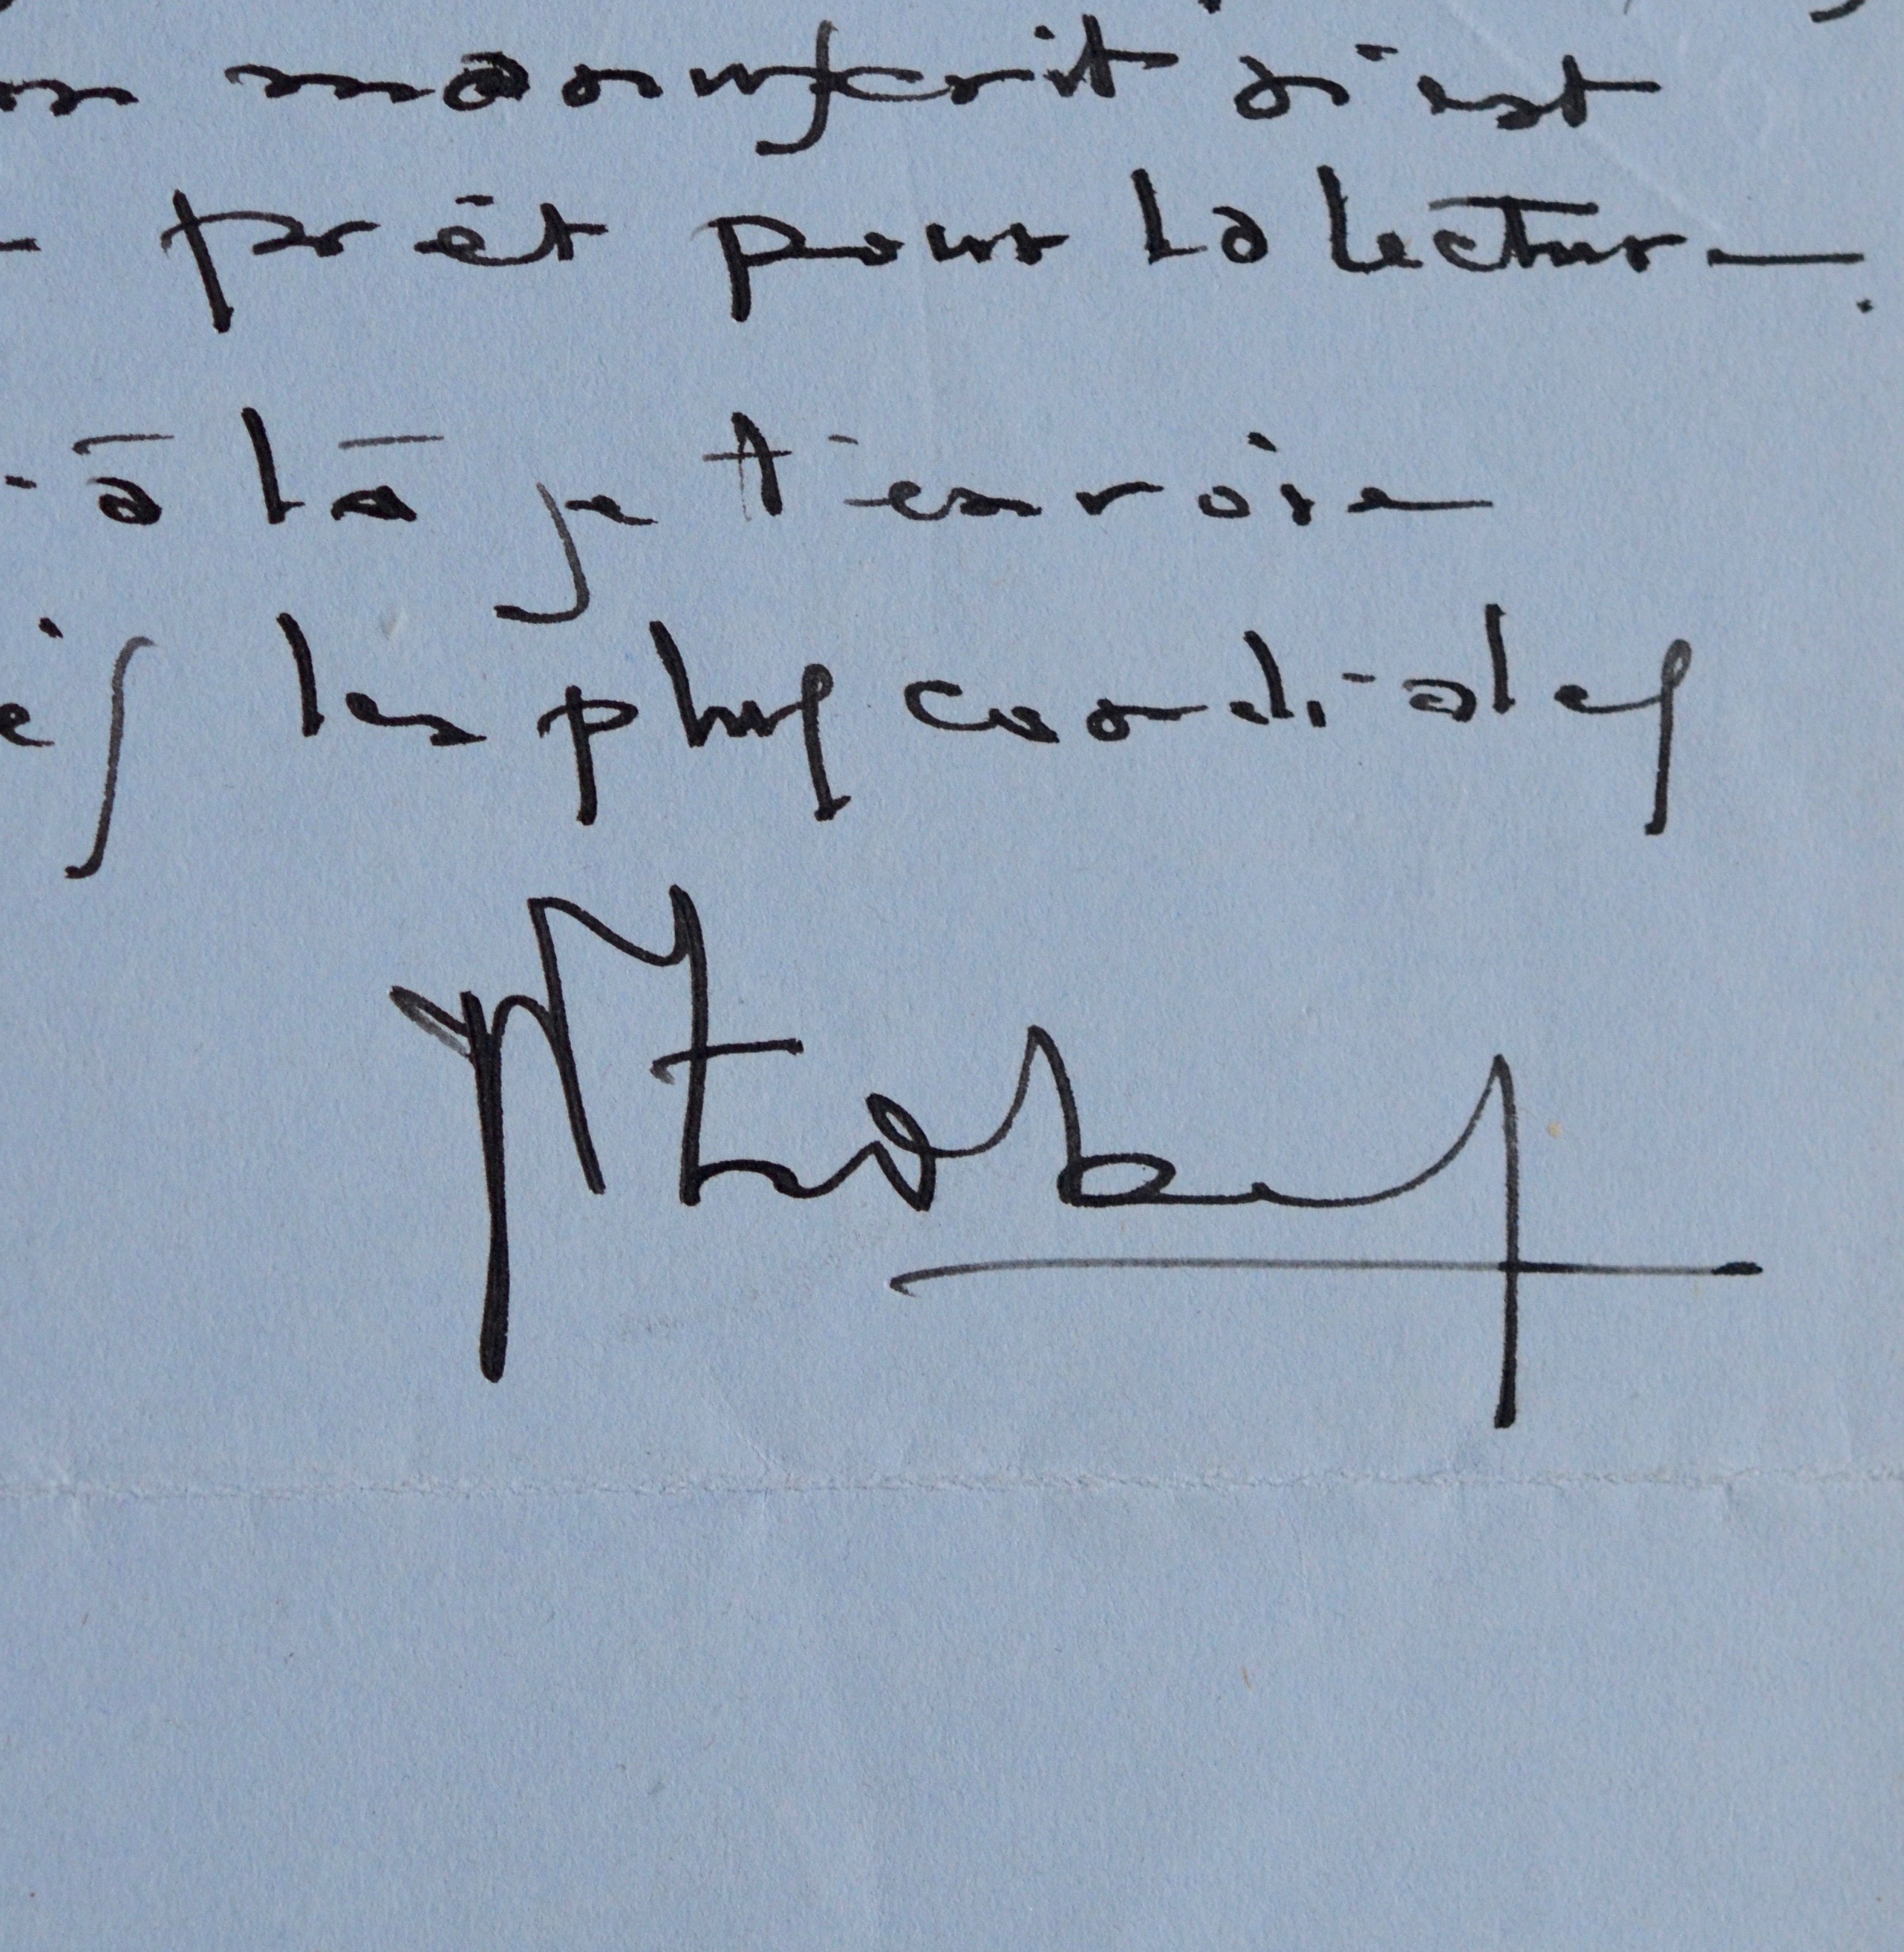 manuscrit n'est
prêt pour la lecture.
à là je t'envoie
les plus cordiales